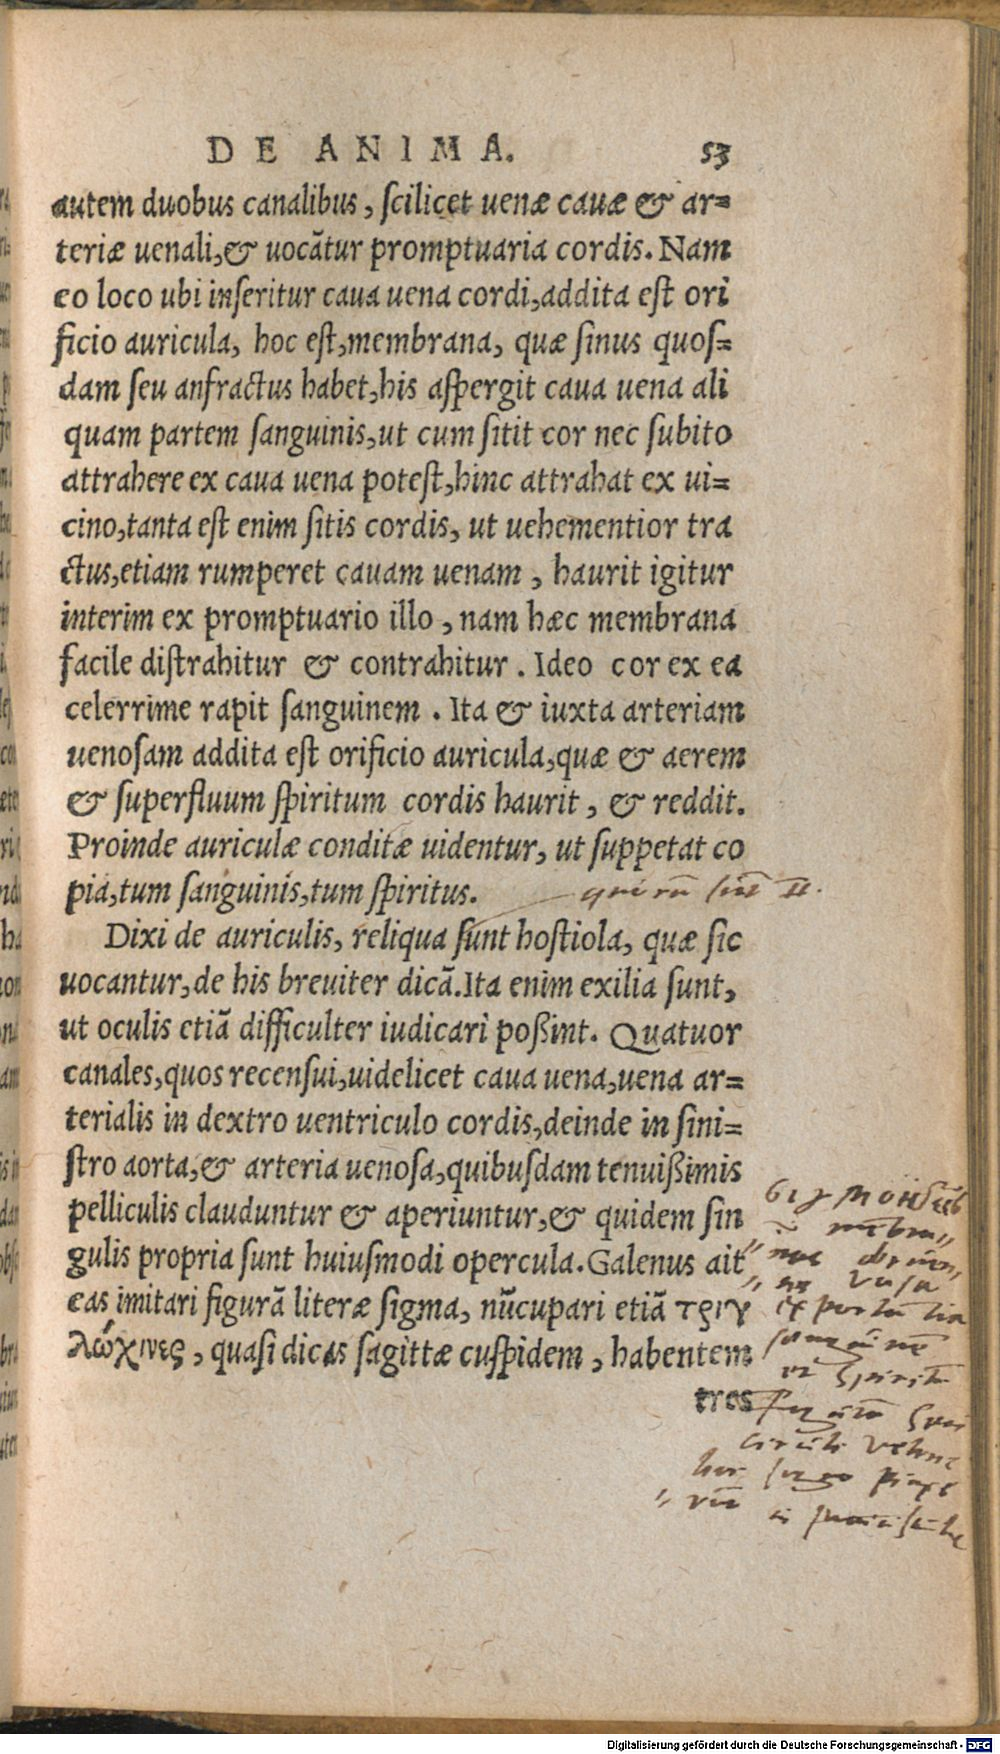 DE ANIMA. 53
autem duobus canalibus, ſcilicet uenæ cauæ & ar=
teriæ uenali, & uocãtur promptuaria cordis. Nam
eo loco ubi inſeritur caua uena cordi, addita eſt ori
ficio auricula, hoc eſt, membrana, quæ ſinus quoſ=
dam ſeu anfractus habet, his aſpergit caua uena ali
quam partem ſanguinis, ut cum ſitit cor nec ſubito
attrahere ex caua uena poteſt, hinc attrahat ex ui=
cino, tanta eſt enim ſitis cordis, ut uehementior tra
ctus, etiam rumperet cauam uenam, haurit igitur
interim ex promptuario illo, nam hæc membrana
facile diſtrahitur & contrahitur. Ideo cor ex ea
celerrime rapit ſanguinem. Ita & iuxta arteriam
uenoſam addita eſt orificio auricula, quæ & aerem
& ſuperfluum ſpiritum cordis haurit, & reddit.
Proinde auriculæ conditæ uidentur, ut ſuppetat co
pia, tum ſanguinis, tum ſpiritus.
Dixi de auriculis, reliqua ſunt hoſtiola, quæ ſic
uocantur, de his breuiter dicã. Ita enim exilia ſunt,
ut oculis etiã difficulter iudicari poßint. Quatuor
canales, quos recenſui, uidelicet caua uena, uena ar=
terialis in dextro uentriculo cordis, deinde in ſini=
ſtro aorta, & arteria uenoſa, quibuſdam tenuißimis
pelliculis clauduntur & aperiuntur, & quidem ſin
gulis propria ſunt huiuſmodi opercula. Galenus ait
eas imitari figurã literæ ſigma, nũcupari etiã τριγ
λώχινες, quaſi dicas ſagittæ cuſpidem, habentem
tres
vasa
Digitalisierung gefördert durch die Deutsche Forschungsgemeinschaft - DFG